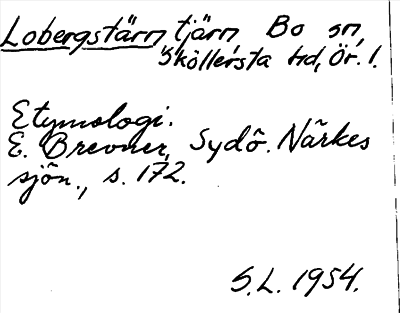 Lobergstärn, tjärn, Bo sn,
Sköllersta hd, Ör. l.
Etymologi.
E. Brevner, Sydö. Närkes
sjön., s. 172.
S.L. 1954.